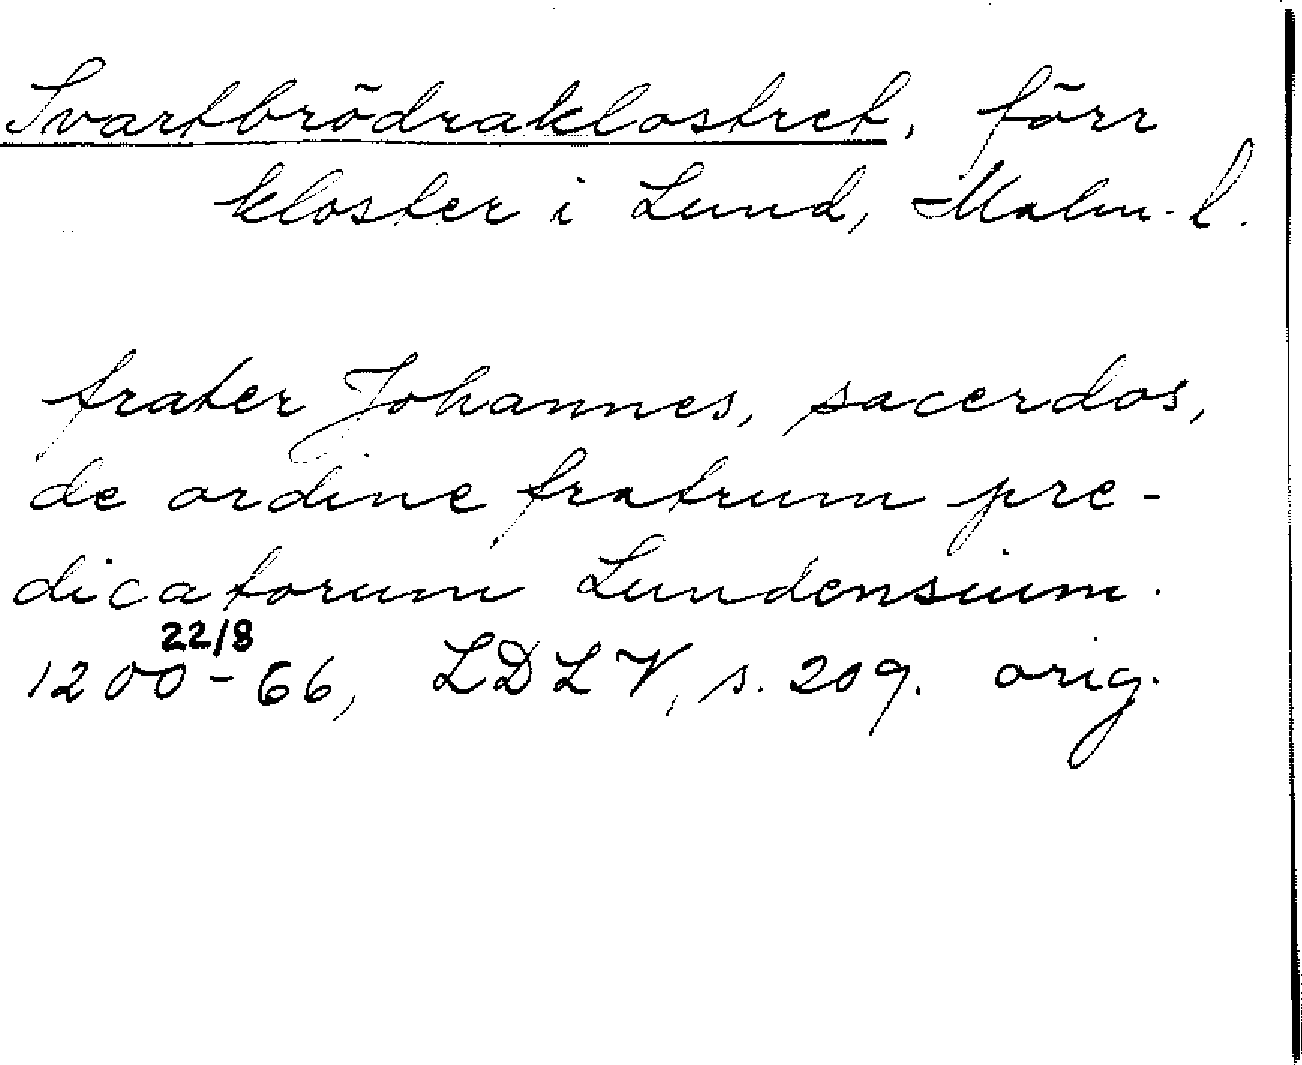 Svartbrödraklostret, förr
kloster i Lund, Malm. l.
frater Johannes, sacerdos,
de ordine fratrum pre-
dicatorum Lundensium.
22/8
1200-66, LDLV, s. 209. orig.